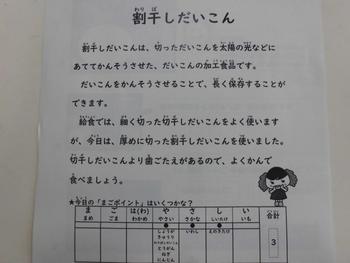 割干しだいこん
割干しだいこんは、切っただいこんを太陽の光などに
あててかんそうさせた、だいこんの加工食品です。
だいこんをかんそうさせることで、長く保存することが
できます。
給食では、細く切った切干しだいこんをよく使います
が、今日は、厚めに切った割干しだいこんを使いました。
切干しだいこんより歯ごたえがあるので、よくかんで
食べましょう。
★今日の「まごポイント」はいくつかな?
ま ご は(わ) や さ し い 合計
まめ ごま わかめ やさい さかな しいたけ いも
しょうが いわし えのきたけ 3
きゅうり
とうがん
ねぎ
にんじん